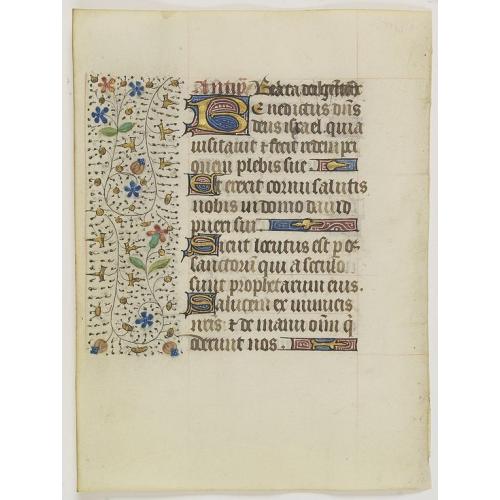 Benedictus dñs
deus israel quia
uisitauit & fecit redempci
onem plebis sue
Et erexit cornu salutis
nobis in domo dauid
pueri sui
Sicut locutus est p os
sanctorum qui a seculo
sunt prophetarum eius.
Salutem ex inimicis
nr̄is & de manu oīm q
oderunt nos.